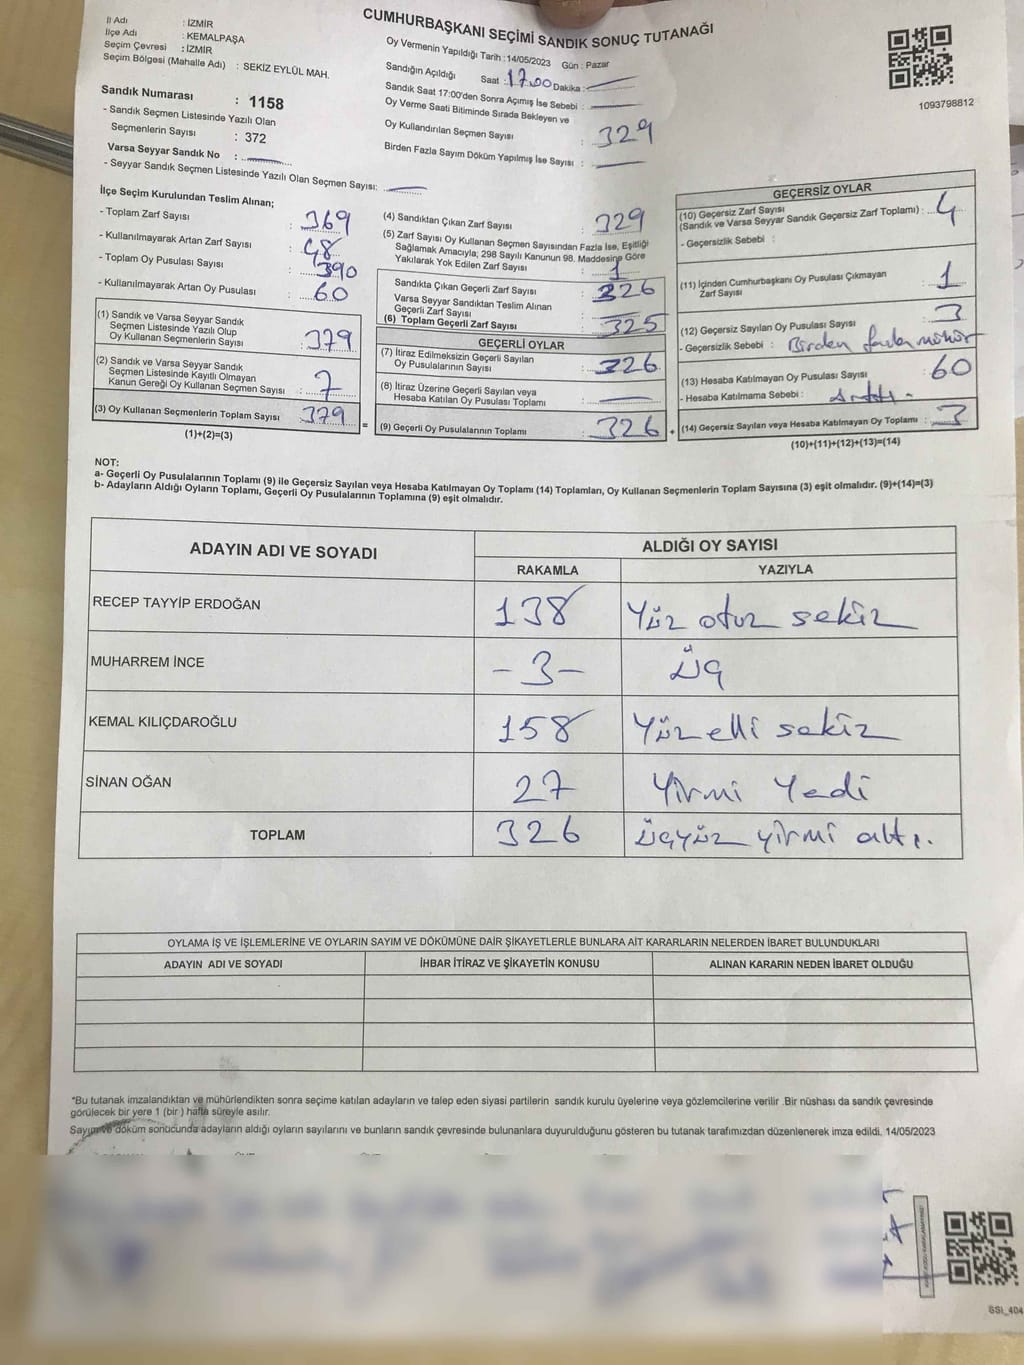 CUMHURBAŞKANI SEÇİMİ SANDIK SONUÇ TUTANAĞI
İl Adı : İZMİR
İlçe Adı : KEMALPAŞA
Seçim Çevresi : İZMİR
Seçim Bölgesi (Mahalle Adı) : SEKİZ EYLÜL MAH.
Sandık Numarası : 1158
- Sandık Seçmen Listesinde Yazılı Olan
Seçmenlerin Sayısı : 372
Varsa Seyyar Sandık No :
- Seyyar Sandık Seçmen Listesinde Yazılı Olan Seçmen Sayısı:
Oy Vermenin Yapıldığı Tarih : 14/05/2023 Gün : Pazar
Sandığın Açıldığı Saat : 17.00 Dakika :
Sandık Saat 17:00'den Sonra Açımış İse Sebebi :
Oy Verme Saati Bitiminde Sırada Bekleyen ve
Oy Kullandırılan Seçmen Sayısı : 329
Birden Fazla Sayım Döküm Yapılmış İse Sayısı :
1093798812
İlçe Seçim Kurulundan Teslim Alınan;
- Toplam Zarf Sayısı : 369
- Kullanılmayarak Artan Zarf Sayısı : 48
- Toplam Oy Pusulası Sayısı : 390
- Kullanılmayarak Artan Oy Pusulası : 60
(1) Sandık ve Varsa Seyyar Sandık
Seçmen Listesinde Yazılı Olup
Oy Kullanan Seçmenlerin Sayısı : 379
(2) Sandık ve Varsa Seyyar Sandık
Seçmen Listesinde Kayıtlı Olmayan
Kanun Gereği Oy Kullanan Seçmen Sayısı : 7
(3) Oy Kullanan Seçmenlerin Toplam Sayısı 379
(1)+(2)=(3)
=
(4) Sandıktan Çıkan Zarf Sayısı : 329
(5) Zarf Sayısı Oy Kullanan Seçmen Sayısından Fazla İse, Eşitliği
Sağlamak Amacıyla; 298 Sayılı Kanunun 98. Maddesine Göre
Yakılarak Yok Edilen Zarf Sayısı : 1
Sandıkta Çıkan Geçerli Zarf Sayısı : 326
Varsa Seyyar Sandıktan Teslim Alınan
Geçerli Zarf Sayısı :
(6) Toplam Geçerli Zarf Sayısı : 325
GEÇERLİ OYLAR
(7) İtiraz Edilmeksizin Geçerli Sayılan
Oy Pusulalarının Sayısı : 326
(8) İtiraz Üzerine Geçerli Sayılan veya
Hesaba Katılan Oy Pusulası Toplamı :
(9) Geçerli Oy Pusulalarının Toplamı : 326
+
GEÇERSİZ OYLAR
(10) Geçersiz Zarf Sayısı
(Sandık ve Varsa Seyyar Sandık Geçersiz Zarf Toplamı) : 4
- Geçersizlik Sebebi :
(11) İçinden Cumhurbaşkanı Oy Pusulası Çıkmayan
Zarf Sayısı : 1
(12) Geçersiz Sayılan Oy Pusulası Sayısı : 3
- Geçersizlik Sebebi : Birden fazla mühür
(13) Hesaba Katılmayan Oy Pusulası Sayısı : 60
- Hesaba Katılmama Sebebi : Arttı -
(14) Geçersiz Sayılan veya Hesaba Katılmayan Oy Toplamı : 3
(10)+(11)+(12)+(13)=(14)
NOT:
a- Geçerli Oy Pusulalarının Toplamı (9) ile Geçersiz Sayılan veya Hesaba Katılmayan Oy Toplamı (14) Toplamları, Oy Kullanan Seçmenlerin Toplam Sayısına (3) eşit olmalıdır. (9)+(14)=(3)
b- Adayların Aldığı Oyların Toplamı, Geçerli Oy Pusulalarının Toplamına (9) eşit olmalıdır.
ADAYIN ADI VE SOYADI ALDIĞI OY SAYISI
RAKAMLA YAZIYLA
RECEP TAYYİP ERDOĞAN 138 Yüz otuz sekiz
MUHARREM İNCE - 3 - Üç
KEMAL KILIÇDAROĞLU 158 Yüz elli sekiz
SİNAN OĞAN 27 Yirmi Yedi
TOPLAM 326 Üçyüz yirmi altı.
OYLAMA İŞ VE İŞLEMLERİNE VE OYLARIN SAYIM VE DÖKÜMÜNE DAİR ŞİKAYETLERLE BUNLARA AİT KARARLARIN NELERDEN İBARET BULUNDUKLARI
ADAYIN ADI VE SOYADI İHBAR İTİRAZ VE ŞİKAYETİN KONUSU ALINAN KARARIN NEDEN İBARET OLDUĞU
*Bu tutanak imzalandıktan ve mühürlendikten sonra seçime katılan adayların ve talep eden siyasi partilerin sandık kurulu üyelerine veya gözlemcilerine verilir .Bir nüshası da sandık çevresinde
görülecek bir yere 1 (bir ) hafta süreyle asılır.
Sayım ve döküm sonucunda adayların aldığı oyların sayılarını ve bunların sandık çevresinde bulunanlara duyurulduğunu gösteren bu tutanak tarafımızdan düzenlenerek imza edildi. 14/05/2023
SSI_404